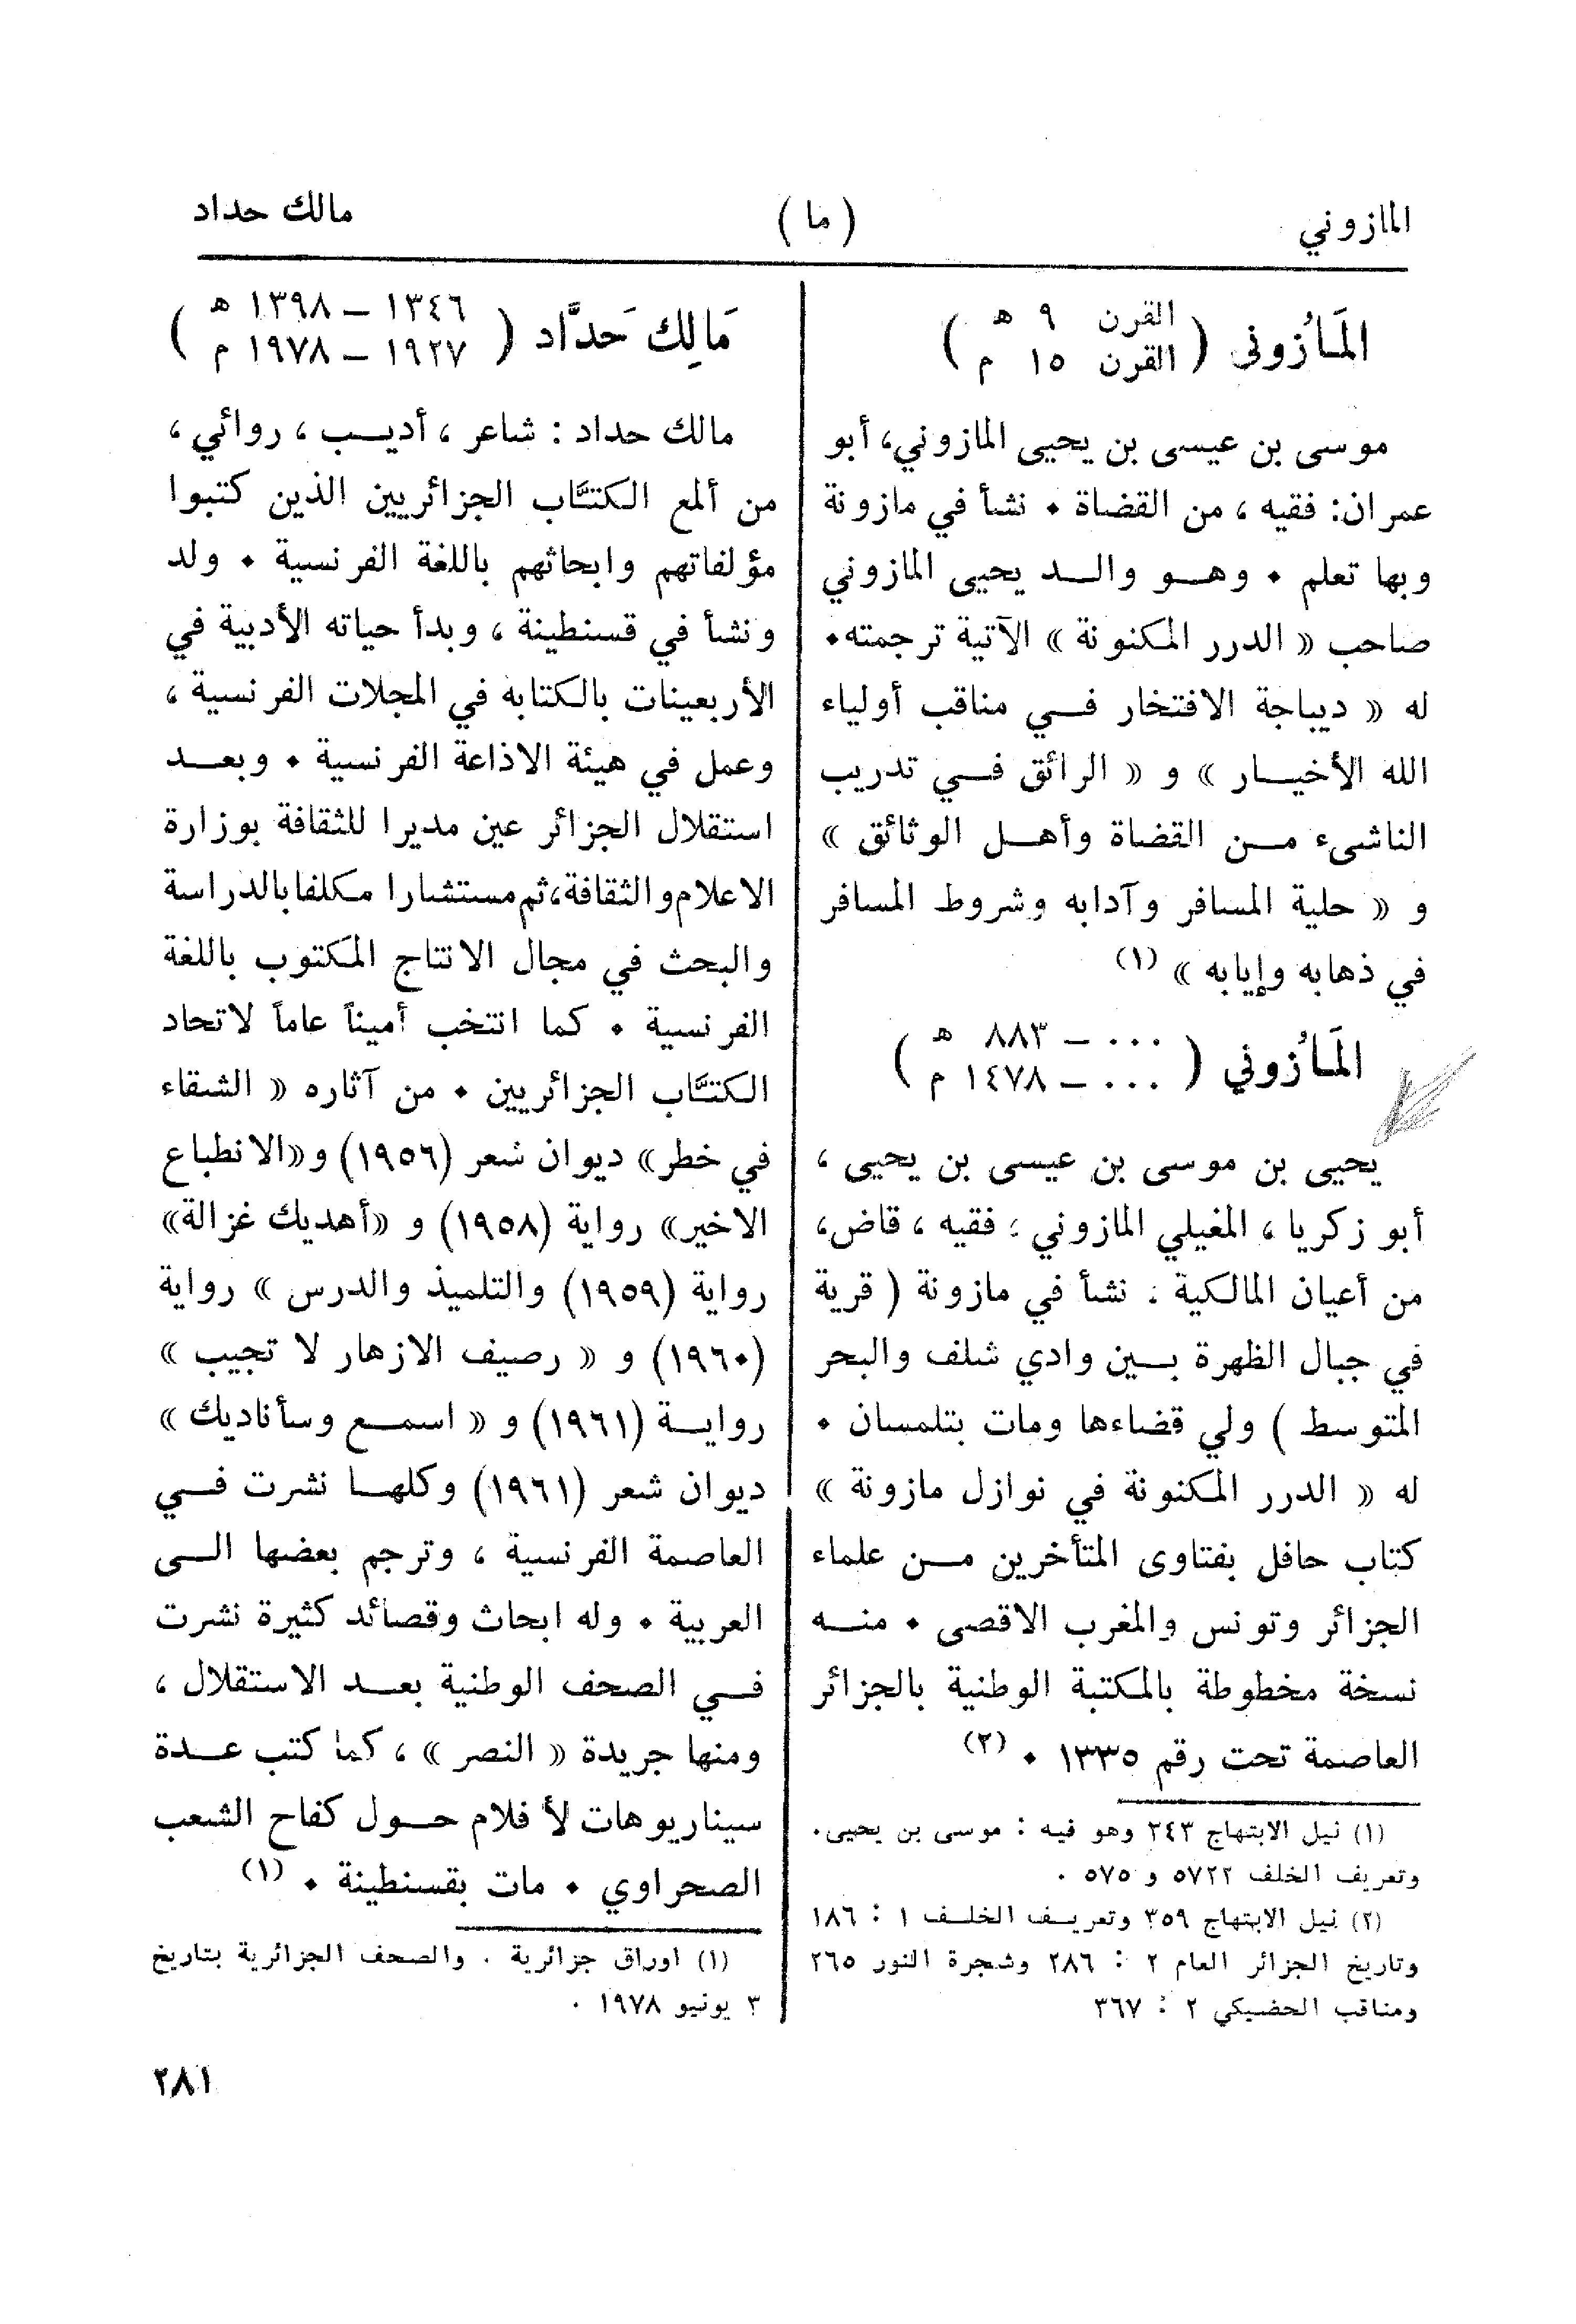 المازوني
( ما )
مالك حداد
المَازُوني ( القرن ٩ هـ
القرن ١٥ م )
موسى بن عيسى بن يحيى المازوني، أبو
عمران: فقيه ، من القضاة ٠ نشأ في مازونة
وبها تعلم ٠ وهو والد يحيى المازوني
صاحب « الدرر المكنونة » الآتية ترجمته٠
له « ديباجة الافتخار في مناقب أولياء
الله الأخيار » و « الرائق في تدريب
الناشىء من القضاة وأهل الوثائق »
و « حلية المسافر وآدابه وشروط المسافر
في ذهابه وإيابه » (١)
المَازُوني ( ٠٠٠ - ٨٨٣ هـ
٠٠٠ - ١٤٧٨ م )
يحيى بن موسى بن عيسى بن يحيى ،
أبو زكريا ، المغيلي المازوني : فقيه ، قاض،
من أعيان المالكية . نشأ في مازونة ( قرية
في جبال الظهرة بين وادي شلف والبحر
المتوسط ) ولي قضاءها ومات بتلمسان ٠
له « الدرر المكنونة في نوازل مازونة »
كتاب حافل بفتاوى المتأخرين من علماء
الجزائر وتونس والمغرب الاقصى ٠ منه
نسخة مخطوطة بالمكتبة الوطنية بالجزائر
العاصمة تحت رقم ١٣٣٥ ٠ (٢)
(١) نيل الابتهاج ٢٤٣ وهو فيه : موسى بن يحيى.
وتعريف الخلف ٥٧٢٢ و ٥٧٥ .
(٢) نيل الابتهاج ٣٥٩ وتعريف الخلف ١ : ١٨٦
وتاريخ الجزائر العام ٢ : ٢٨٦ وشجرة النور ٢٦٥
ومناقب الحضيكي ٢ : ٣٦٧
مَالِك حَدَّاد ( ١٣٤٦ - ١٣٩٨ هـ
١٩٢٧ - ١٩٧٨ م )
مالك حداد : شاعر ، أديب ، روائي ،
من ألمع الكتَّاب الجزائريين الذين كتبوا
مؤلفاتهم وابحاثهم باللغة الفرنسية ٠ ولد
ونشأ في قسنطينة ، وبدأ حياته الأدبية في
الأربعينات بالكتابه في المجلات الفرنسية ،
وعمل في هيئة الاذاعة الفرنسية ٠ وبعد
استقلال الجزائر عين مديرا للثقافة بوزارة
الاعلام والثقافة، ثم مستشارا مكلفا بالدراسة
والبحث في مجال الانتاج المكتوب باللغة
الفرنسية ٠ كما انتخب أميناً عاماً لاتحاد
الكتَّاب الجزائريين ٠ من آثاره « الشقاء
في خطر» ديوان شعر (١٩٥٦) و«الانطباع
الاخير» رواية (١٩٥٨) و «أهديك غزالة»
رواية (١٩٥٩) والتلميذ والدرس » رواية
(١٩٦٠) و « رصيف الازهار لا تجيب »
رواية (١٩٦١) و « اسمع وسأناديك »
ديوان شعر (١٩٦١) وكلها نشرت في
العاصمة الفرنسية ، وترجم بعضها الى
العربية ٠ وله ابحاث وقصائد كثيرة نشرت
في الصحف الوطنية بعد الاستقلال ،
ومنها جريدة « النصر » ، كما كتب عدة
سيناريوهات لأفلام حول كفاح الشعب
الصحراوي ٠ مات بقسنطينة ٠ (١)
(١) اوراق جزائرية . والصحف الجزائرية بتاريخ
٣ يونيو ١٩٧٨ .
٢٨١